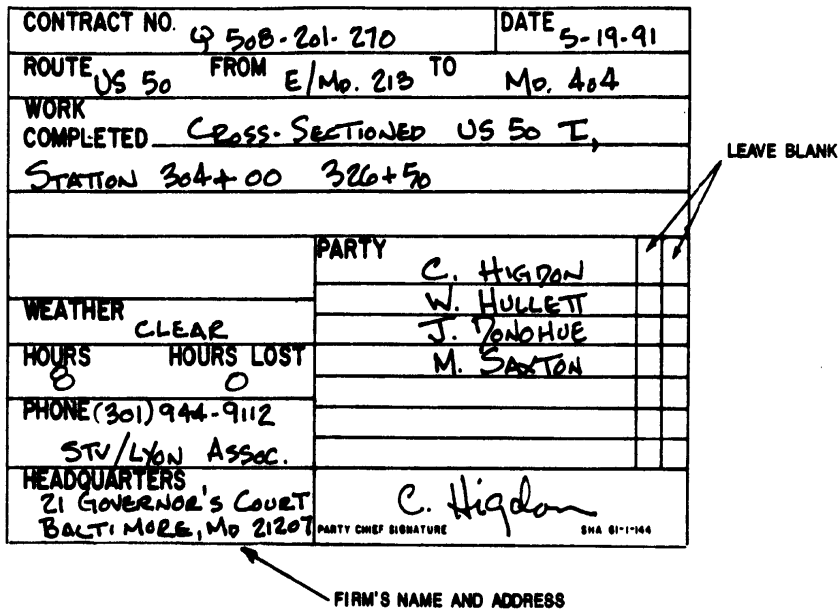 CONTRACT NO. Q 508-201-270 DATE 5-19-91
ROUTE US 50 FROM E/MD. 213 TO MD. 404
WORK
COMPLETED CROSS-SECTIONED US 50 I,
STATION 304+00 326+50
LEAVE BLANK
PARTY
C. HIGDON
W. HULLETT
J. DONOHUE
M. SAXTON
WEATHER
CLEAR
HOURS HOURS LOST
8 0
PHONE (301) 944-9112
STV/LYON ASSOC.
HEADQUARTERS
21 GOVERNOR'S COURT
BALTIMORE, MD 21207
C. Higdon
PARTY CHIEF SIGNATURE SHA 61-1-144
FIRM'S NAME AND ADDRESS